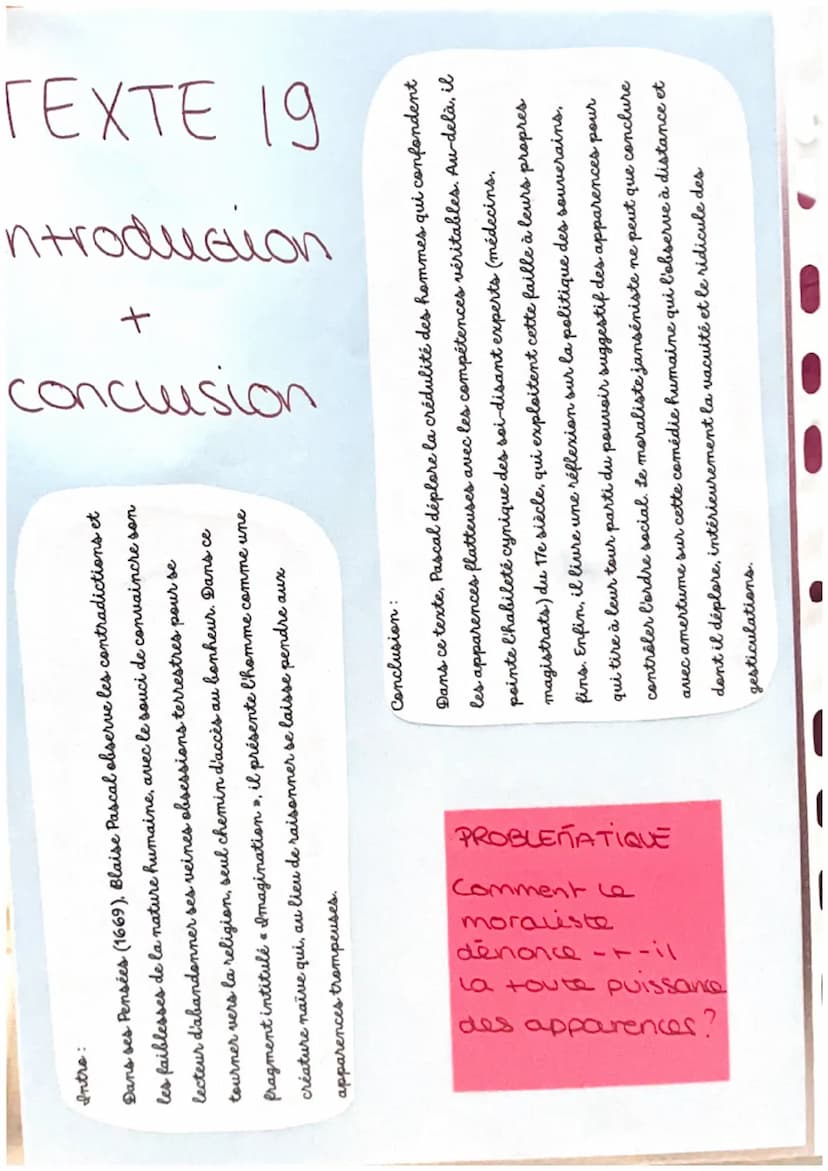 TEXTE 19
ntroduction
+
conclusion
Intro :
Dans ses Pensées (1669), Blaise Pascal observe les contradictions et
les faiblesses de la nature humaine, avec le souci de convaincre son
lecteur d'abandonner ses veines obsessions terrestres pour se
tourner vers la religion, seul chemin d'accès au bonheur. Dans ce
fragment intitulé « Imagination », il présente l'homme comme une
créature naïve qui, au lieu de raisonner se laisse pendre aux
apparences trompeuses.
PROBLEMATIQUE
Comment le
moraliste
dénonce-t-il
la toute puissance
des apparences?
Conclusion :
Dans ce texte, Pascal déplore la crédulité des hommes qui confondent
les apparences flatteuses avec les compétences véritables. Au-delà, il
pointe l'habileté cynique des soi-disant experts (médecins,
magistrats) du 17e siècle, qui exploitent cette faille à leurs propres
fins. Enfin, il livre une réflexion sur la politique des souverains,
qui tire à leur tour parti du pouvoir suggestif des apparences pour
contrôler l'ordre social. Le moraliste janséniste ne peut que conclure
avec amertume sur cette comédie humaine qui l'observe à distance et
dont il déplore, intérieurement la vacuité et le ridicule des
gesticulations.